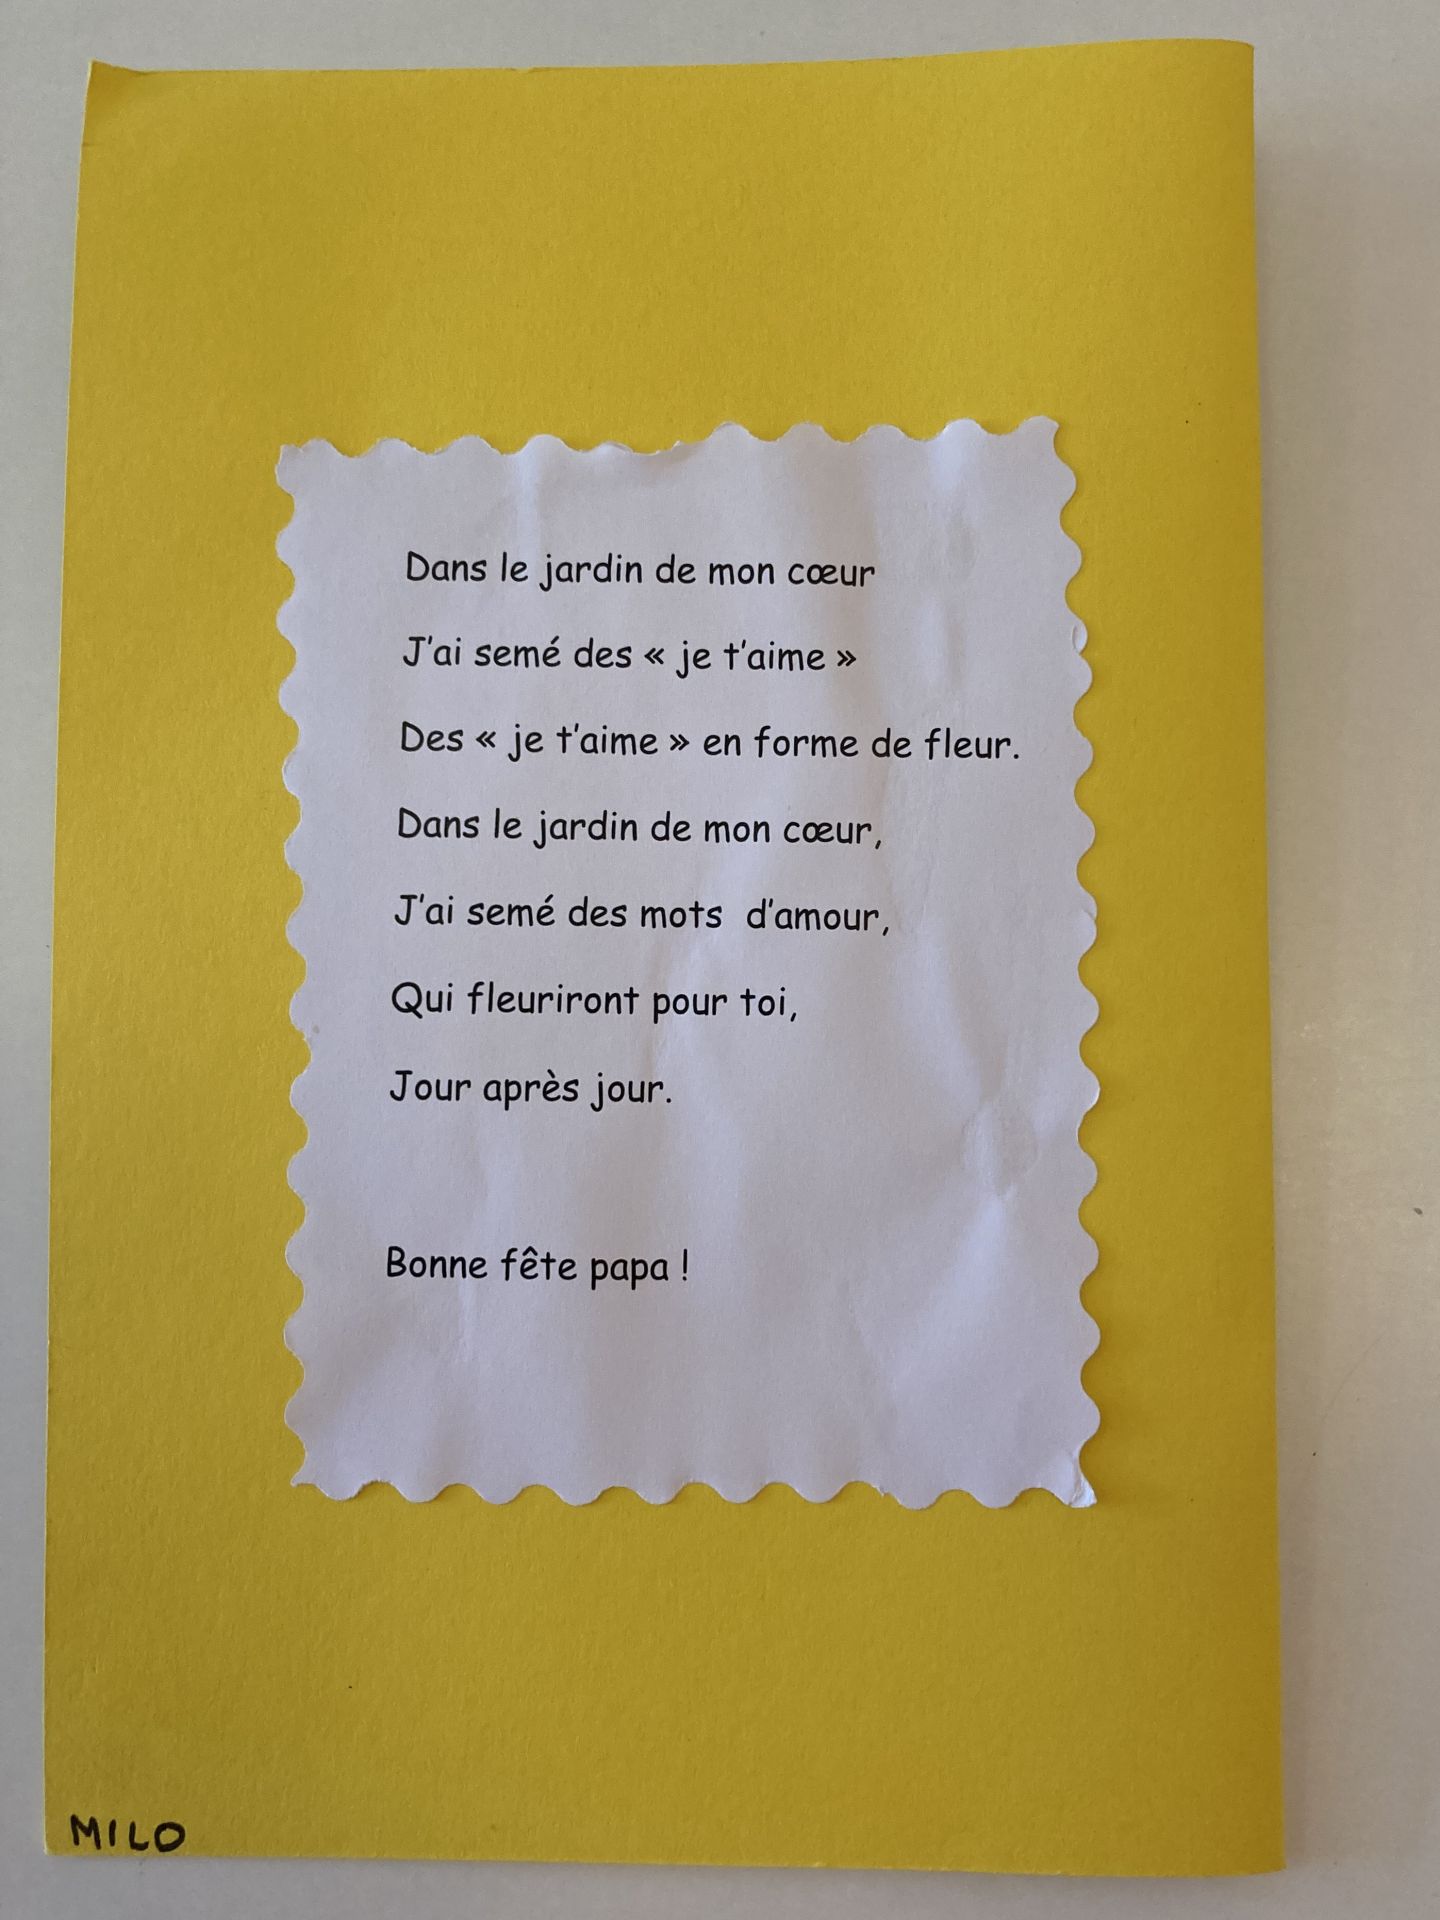 Dans le jardin de mon cœur
J'ai semé des « je t'aime »
Des « je t'aime » en forme de fleur.
Dans le jardin de mon cœur,
J'ai semé des mots  d'amour,
Qui fleuriront pour toi,
Jour après jour.
Bonne fête papa !
MILO